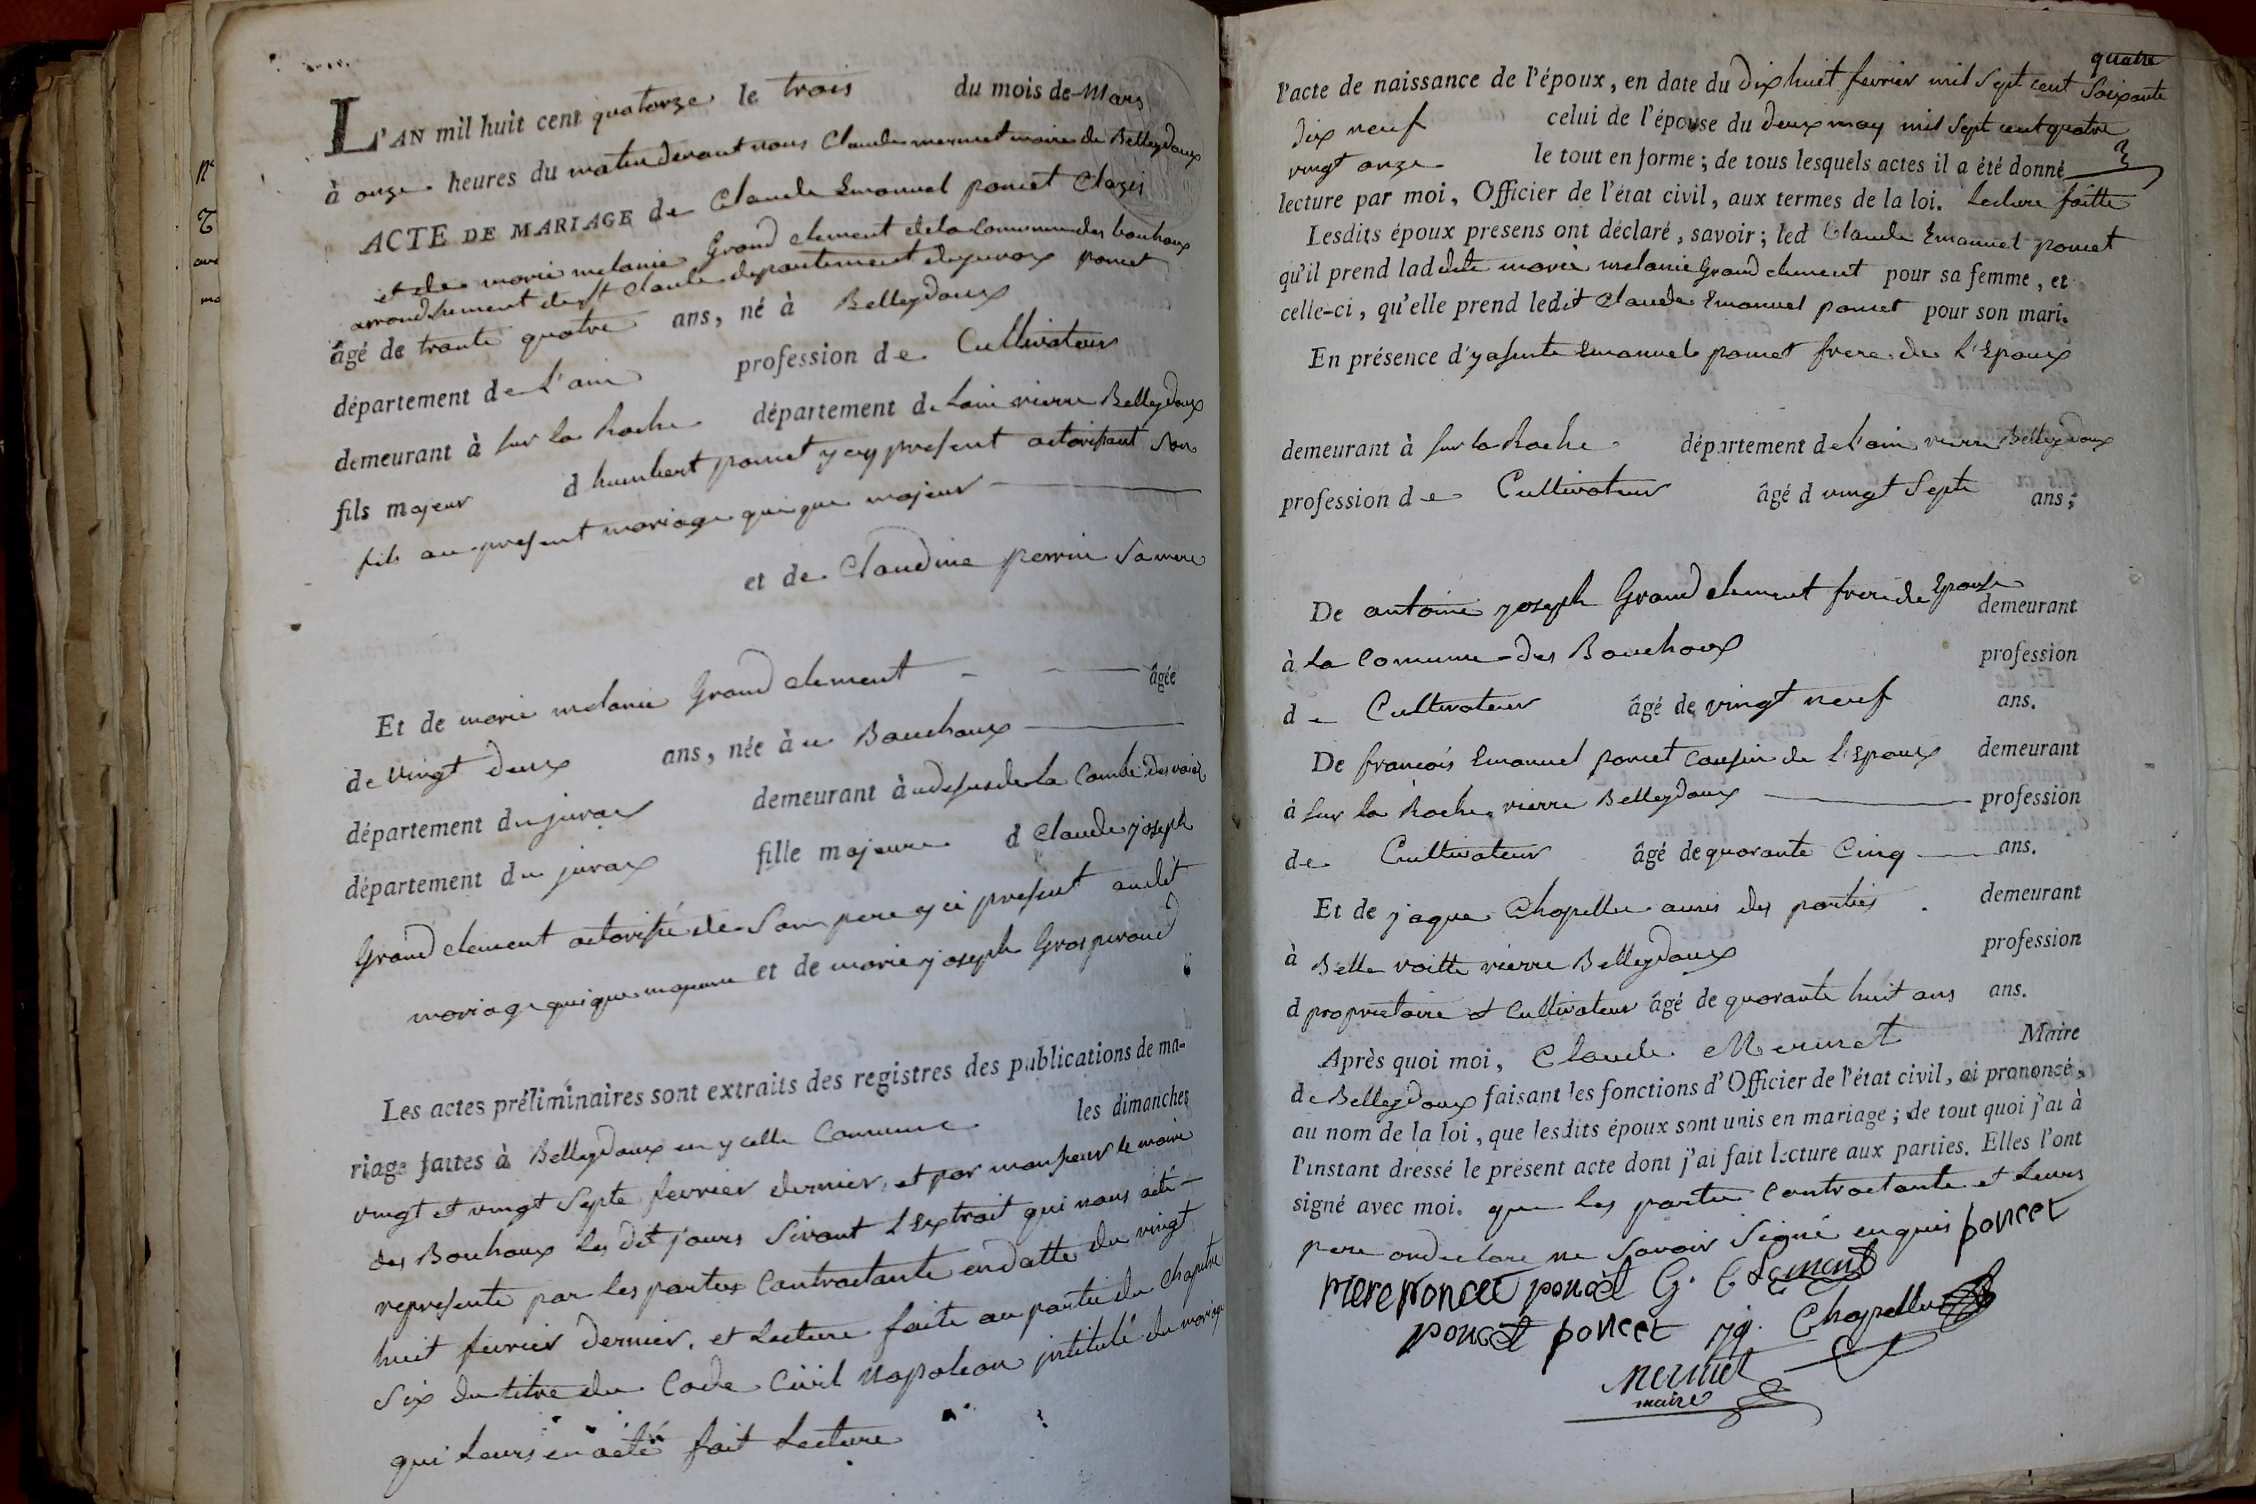 L'AN mil huit cent quatorze le trois du mois de Mars
à onze heures du matin devant nous Claude mermet maire de Belleydoux
ACTE DE MARIAGE de Claude Emanuel poncet
et de marie melanie Grand clement de la Commune des bouchoux
arrondissement de st Claude departement du juraux poncet
âgé de trante quatre ans, né à Belleydoux
département de L'ain profession de Cultivateur
demeurant à sur la Roche département de Lain rierre Belleydoux
fils majeur d humbert poncet y cy present autorisant son
fils au present mariage quique majeur
et de Claudine perrin sa mere
Et de marie melanie Grand clement âgée
de vingt deux ans, née à u Bouchoux
département du juraux demeurant à udesus de la Combe
département du juraux fille majeure d Claude joseph
Grand clement autorisée de Son pere y ci present audit
mariage quique majeure et de marie joseph Gros
Les actes préliminaires sont extraits des registres des publications de ma-
riage faites à Belleydoux en ycelle Commune les dimanches
vingt et vingt septe fevrier dernier, et par monsieur le maire
des Bouhoux les dit jours Sivant L'Extrait qui nous a été
represente par les parties Contractante en datte du vingt
huit fevrier dernier. et Lecture faite au partie du Chapitre
Six du titre du Code Civil Napoleon intitulé du mariage
qui Leurs en a été fait Lecture
quatre
l'acte de naissance de l'époux, en date du dix huit fevrier mil Sept cent Soixante
dix neuf celui de l'épouse du deux may mil Sept cent quatre
vingt onze le tout en forme; de tous lesquels actes il a été donné
lecture par moi, Officier de l'état civil, aux termes de la loi. Lecture faitte
Lesdits époux presens ont déclaré, savoir; led Claude Emanuel poncet
qu'il prend lad dite marie melanie Grand clement pour sa femme, et
celle-ci, qu'elle prend ledit Claude Emanuel poncet pour son mari.
En présence d'yasinte Emanuel poncet frere de L'Epoux
demeurant à sur la Roche département de l'ain rierre Belleydoux
profession de Cultivateur âgé d vingt Septe ans;
De antoine joseph Grand clement frere de Epouse demeurant
à La Comune des Bouchoux profession
de Cultivateur âgé de vingt neuf ans.
De francois Emanuel poncet cousin de L'Epoux demeurant
à sur la Roche rierre Belleydoux profession
de Cultivateur âgé de quarante Cinq ans.
Et de jaque Chapellu amis des parties demeurant
à Belle voitte rierre Belleydoux profession
d proprietaire et Cultivateur âgé de quarante huit ans ans.
Après quoi moi, Claude Mermet Maire
de Belleydoux faisant les fonctions d'Officier de l'état civil, ai prononcé,
au nom de la loi, que lesdits époux sont unis en mariage; de tout quoi j'ai à
l'instant dressé le présent acte dont j'ai fait lecture aux parties. Elles l'ont
signé avec moi. que les partie Contractante et Leurs
pere on declare ne Savoir Signé enquis poncet
piere poncet poncet G. Clement
poncet poncet Chapellu
Mermet
maire